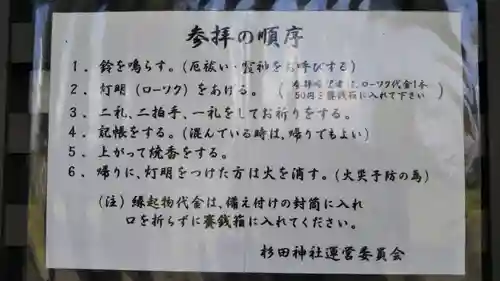 参拝の順序
1. 鈴を鳴らす。(厄祓い・霊神をお呼びする)
2. 灯明(ローソク)をあげる。
ローソク代金1本
50円を賽銭箱に入れて下さい
3. 二礼、二拍手、一礼をしてお祈りをする。
4. 記帳をする。(混んでいる時は、帰りでもよい)
5. 上がって焼香をする。
6. 帰りに、灯明をつけた方は火を消す。(火災予防の為)
(注) 縁起物代金は、備え付けの封筒に入れ
口を折らずに賽銭箱に入れてください。
杉田神社運営委員会